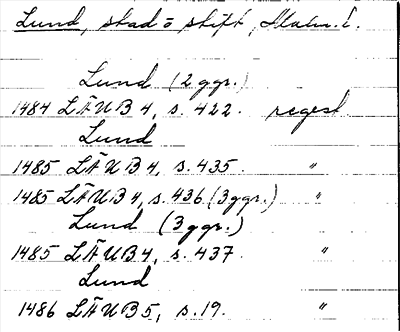 Lund, stad o skift, Malm. l.
Lund (2 ggr.)
1484 LÄUB 4, s. 422. regest
Lund
1485 LÄUB 4, s. 435. "
1485 LÄUB 4, s. 436 (3 ggr.) "
Lund (3 ggr.)
1485 LÄUB 4, s. 437. "
Lund
1486 LÄUB 5, s. 19. "